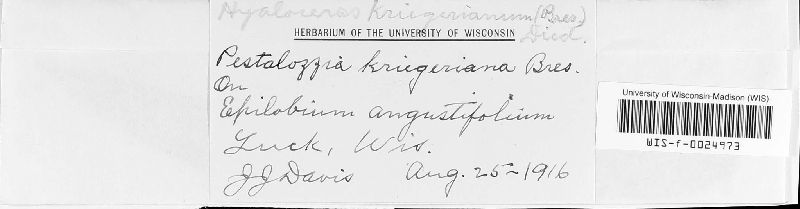 Hyaloceras kriegerianum (Bres.)
Died.
HERBARIUM OF THE UNIVERSITY OF WISCONSIN
Pestalozzia kriegeriana Bres.
On
Epilobium angustifolium
Luck, Wis.
JJ Davis Aug. 25-1916
University of Wisconsin-Madison (WIS)
WIS-f-0024973